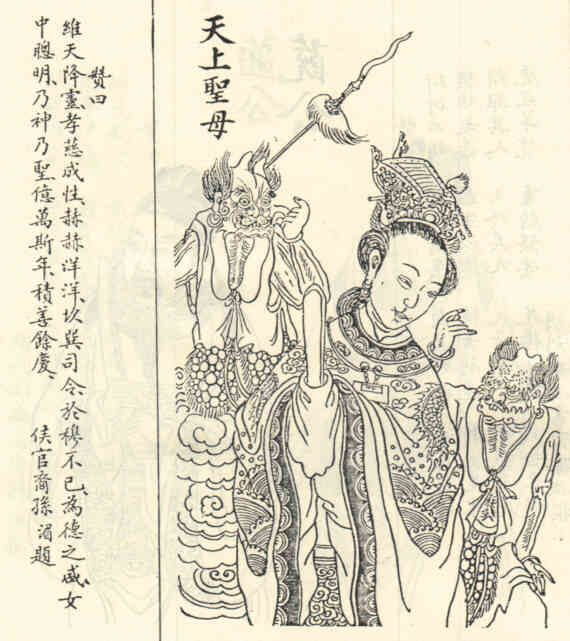 天上聖母
贊曰
維天降靈孝慈成性赫赫洋洋坎巽司令於穆不已為德之盛女
中聰明乃神乃聖億萬斯年積善餘慶
侯官裔孫湄題